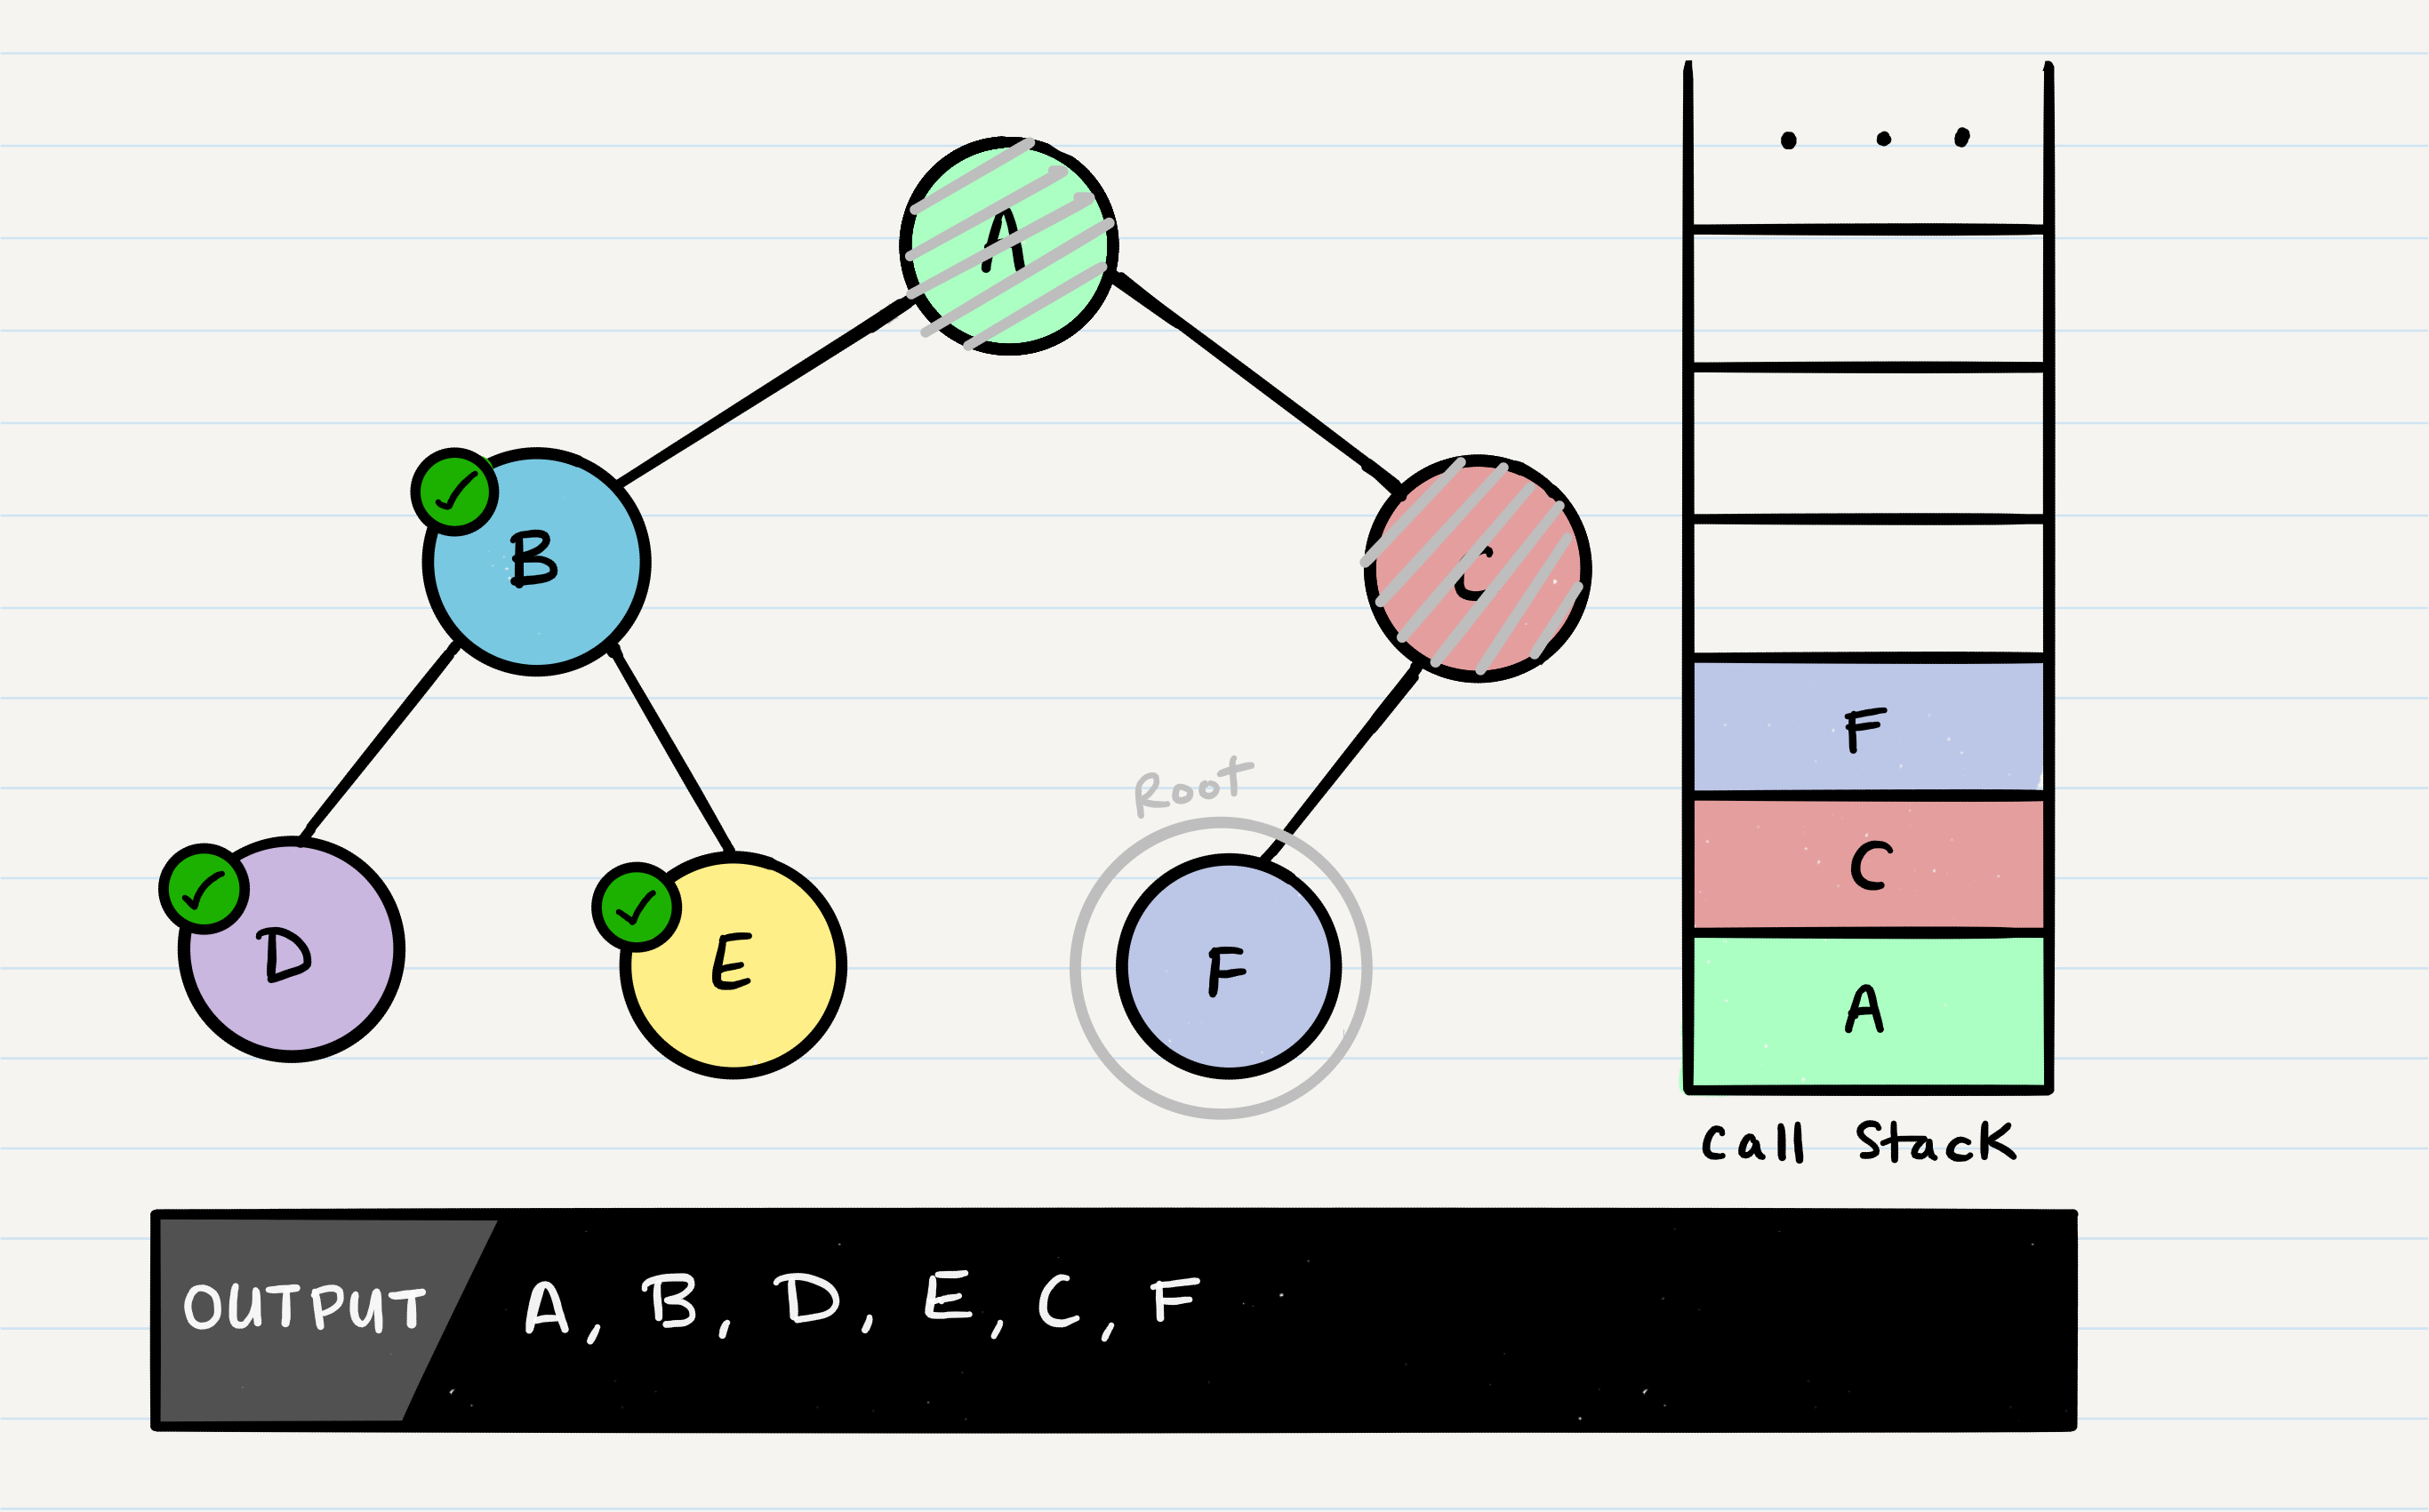 A
B
C
Root
D
E
F
F
C
A
Call Stack
OUTPUT A, B, D, E, C, F